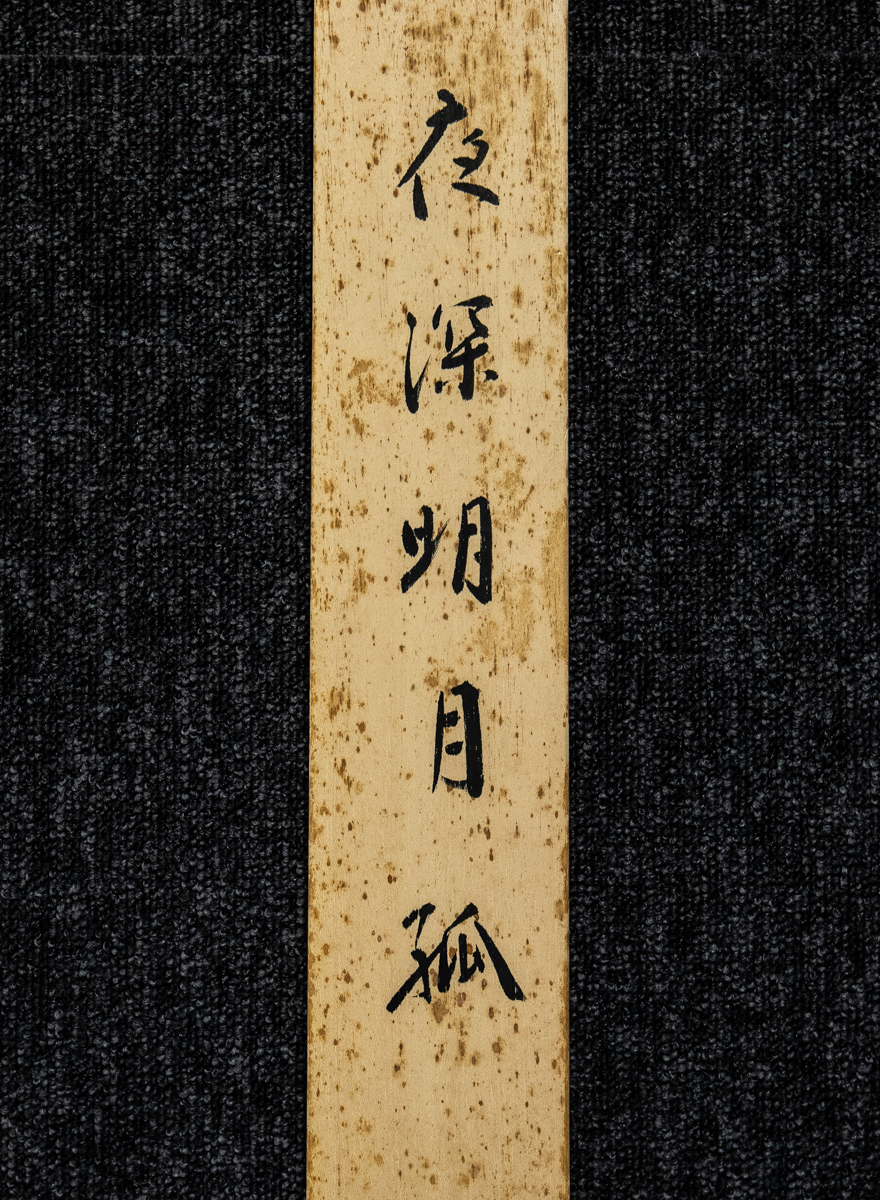 夜深明月孤